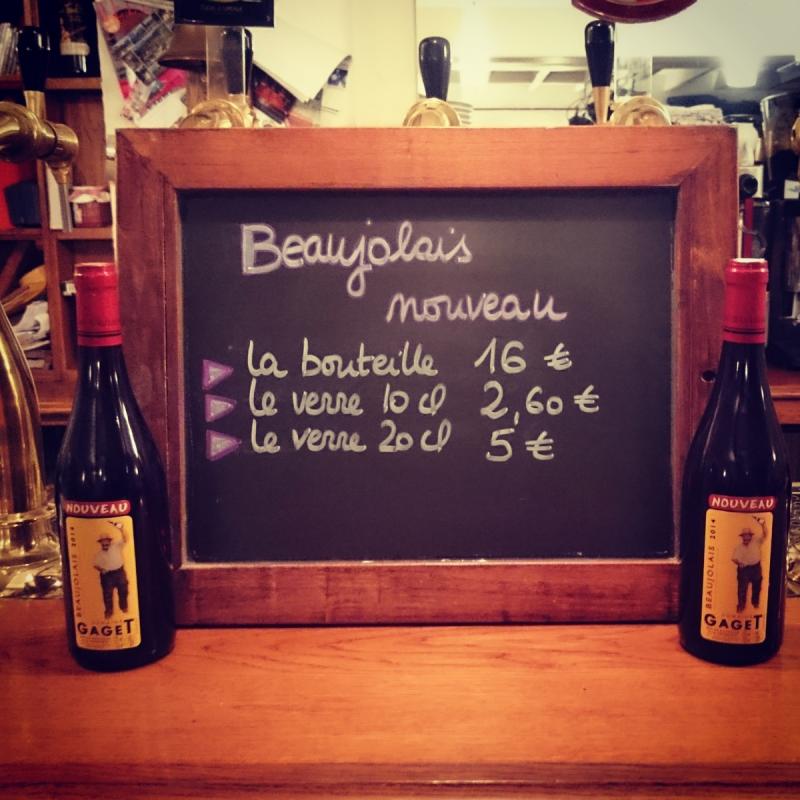 Beaujolais
nouveau
la bouteille 16 €
le verre 10 cl 2,60 €
le verre 20 cl 5 €
NOUVEAU
BEAUJOLAIS 2014
GAGET
NOUVEAU
BEAUJOLAIS 2014
GAGET